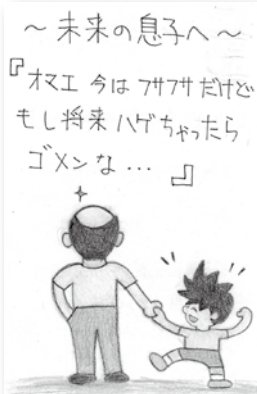 ～未来の息子へ～
『オマエ 今は フサフサ だけど
もし将来 ハゲちゃったら
ゴメンな…』